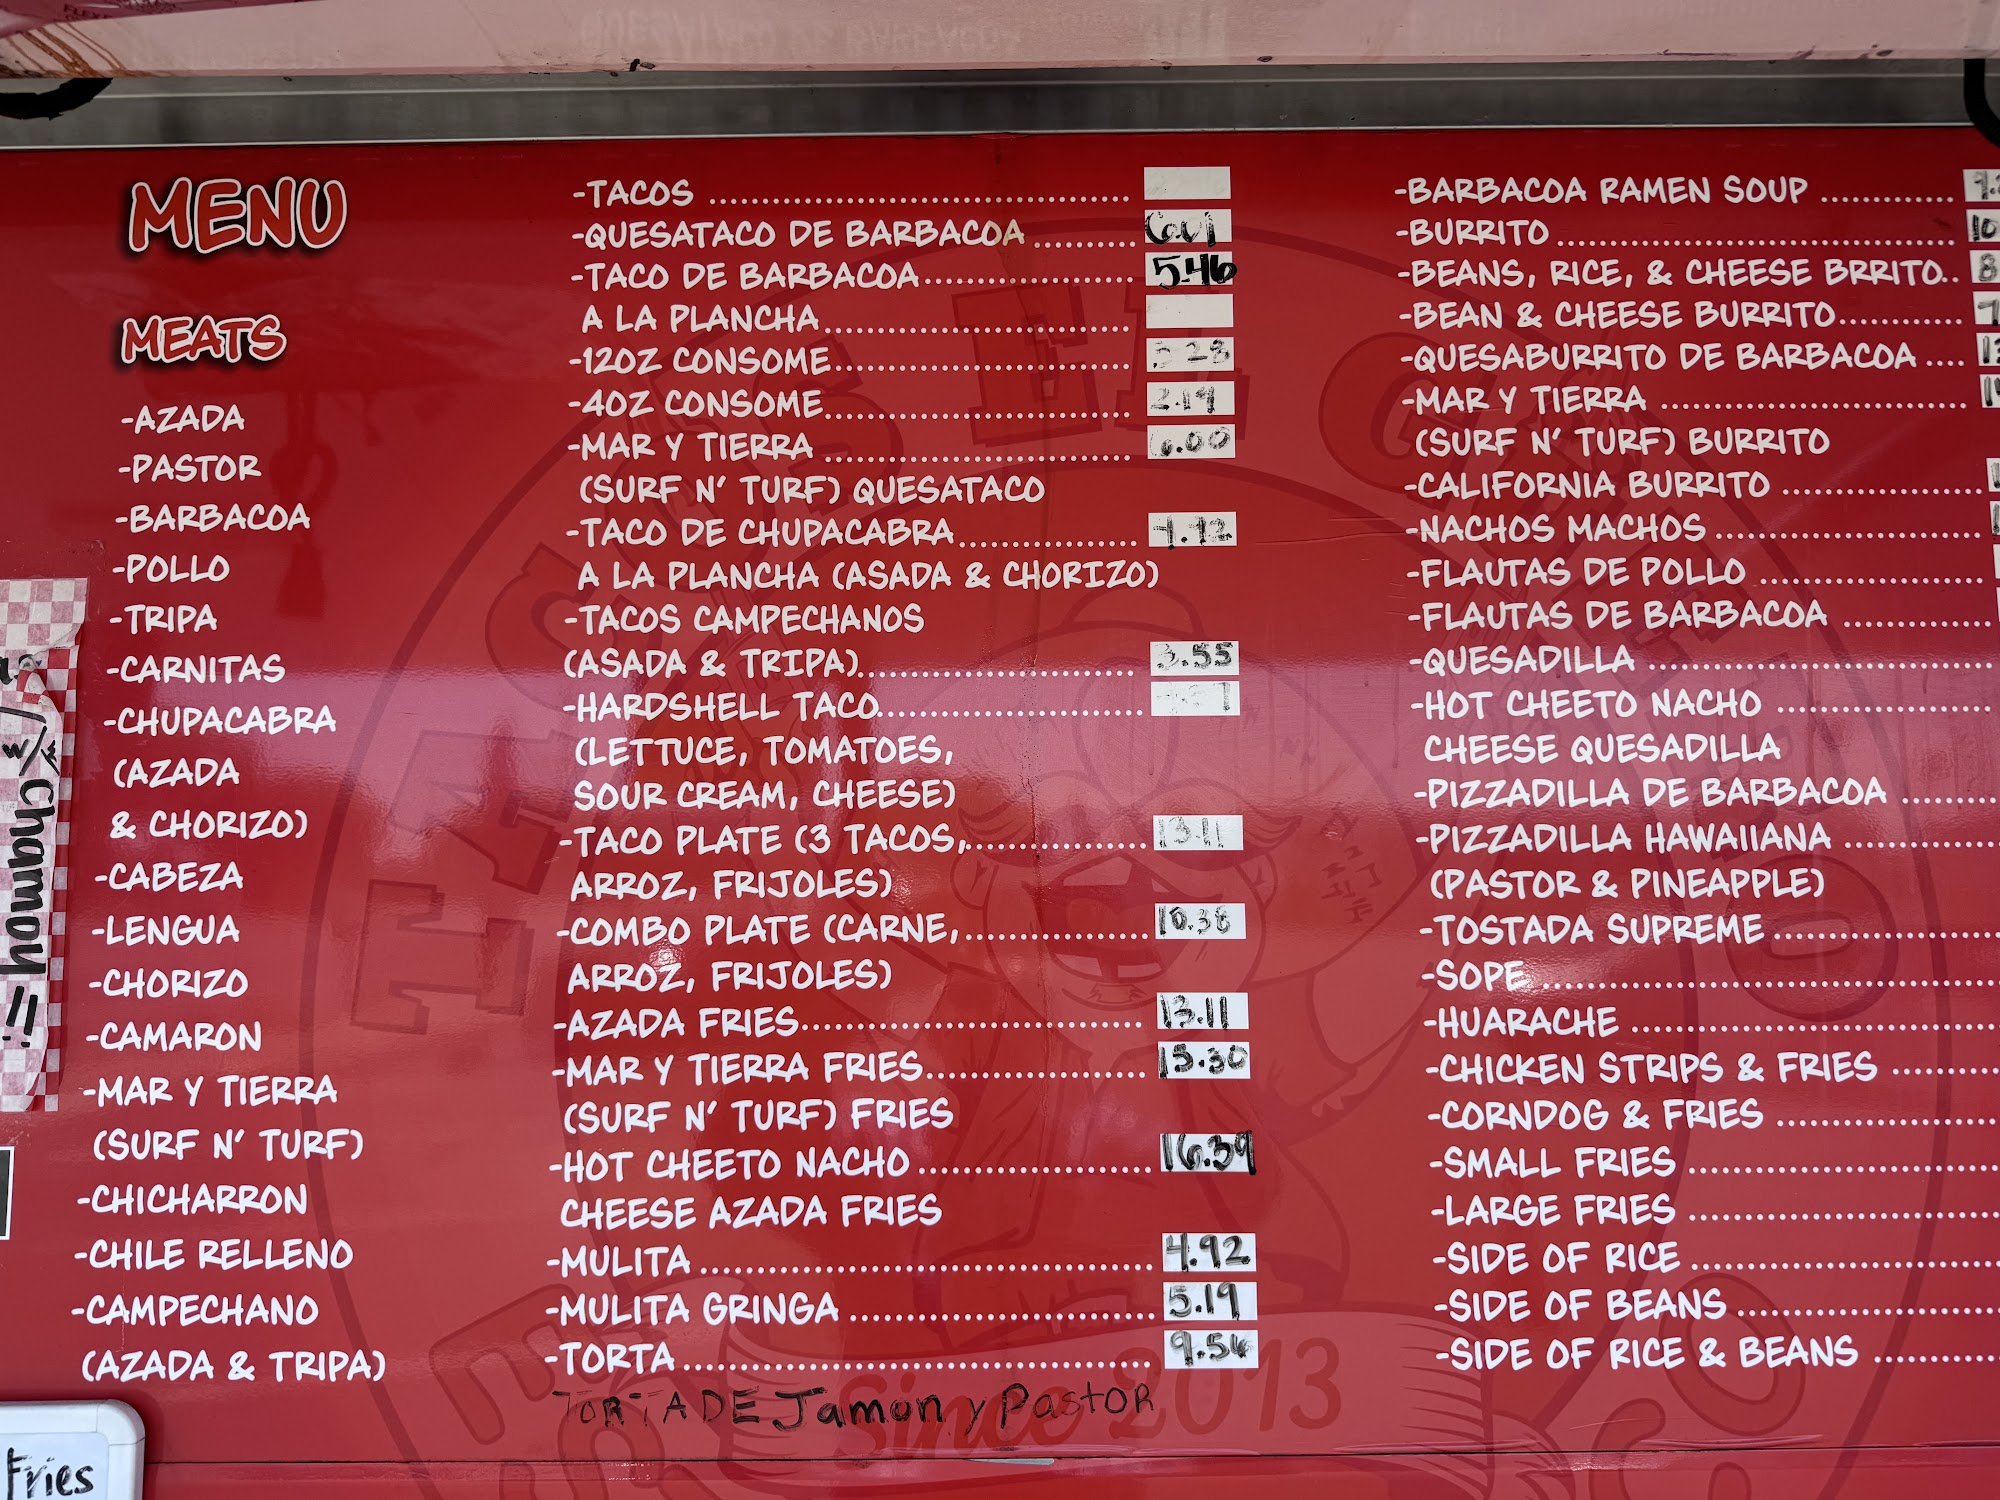 MENU
MEATS
-AZADA
-PASTOR
-BARBACOA
-POLLO
-TRIPA
-CARNITAS
-CHUPACABRA
(AZADA
& CHORIZO)
-CABEZA
-LENGUA
-CHORIZO
-CAMARON
-MAR Y TIERRA
(SURF N' TURF)
-CHICHARRON
-CHILE RELLENO
-CAMPECHANO
(AZADA & TRIPA)
-TACOS
-QUESATACO DE BARBACOA 6.01
-TACO DE BARBACOA 5.46
A LA PLANCHA
-12OZ CONSOME
-4OZ CONSOME 2.19
-MAR Y TIERRA 6.00
(SURF N' TURF) QUESATACO
-TACO DE CHUPACABRA
A LA PLANCHA (ASADA & CHORIZO)
-TACOS CAMPECHANOS
(ASADA & TRIPA) 3.55
-HARDSHELL TACO
(LETTUCE, TOMATOES,
SOUR CREAM, CHEESE)
-TACO PLATE (3 TACOS, 13.11
ARROZ, FRIJOLES)
-COMBO PLATE (CARNE, 10.38
ARROZ, FRIJOLES)
-AZADA FRIES 13.11
-MAR Y TIERRA FRIES 15.30
(SURF N' TURF) FRIES
-HOT CHEETO NACHO 16.39
CHEESE AZADA FRIES
-MULITA 4.92
-MULITA GRINGA 5.19
-TORTA 9.56
TORTA DE Jamon y Pastor
-BARBACOA RAMEN SOUP
-BURRITO
-BEANS, RICE, & CHEESE BRRITO
-BEAN & CHEESE BURRITO
-QUESABURRITO DE BARBACOA
-MAR Y TIERRA
(SURF N' TURF) BURRITO
-CALIFORNIA BURRITO
-NACHOS MACHOS
-FLAUTAS DE POLLO
-FLAUTAS DE BARBACOA
-QUESADILLA
-HOT CHEETO NACHO
CHEESE QUESADILLA
-PIZZADILLA DE BARBACOA
-PIZZADILLA HAWAIIANA
(PASTOR & PINEAPPLE)
-TOSTADA SUPREME
-SOPE
-HUARACHE
-CHICKEN STRIPS & FRIES
-CORNDOG & FRIES
-SMALL FRIES
-LARGE FRIES
-SIDE OF RICE
-SIDE OF BEANS
-SIDE OF RICE & BEANS
Since 2013
Fries